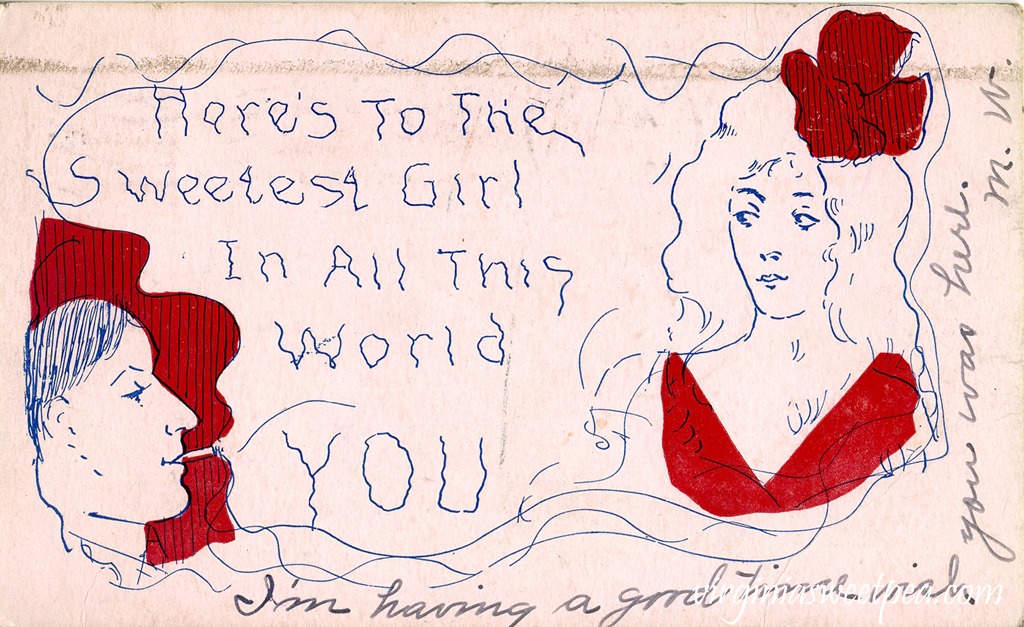 Here's To The
Sweetest Girl
In All This
World
YOU
I'm having a good time. wish
you was here.
M. W.
virginiasweetpea.com